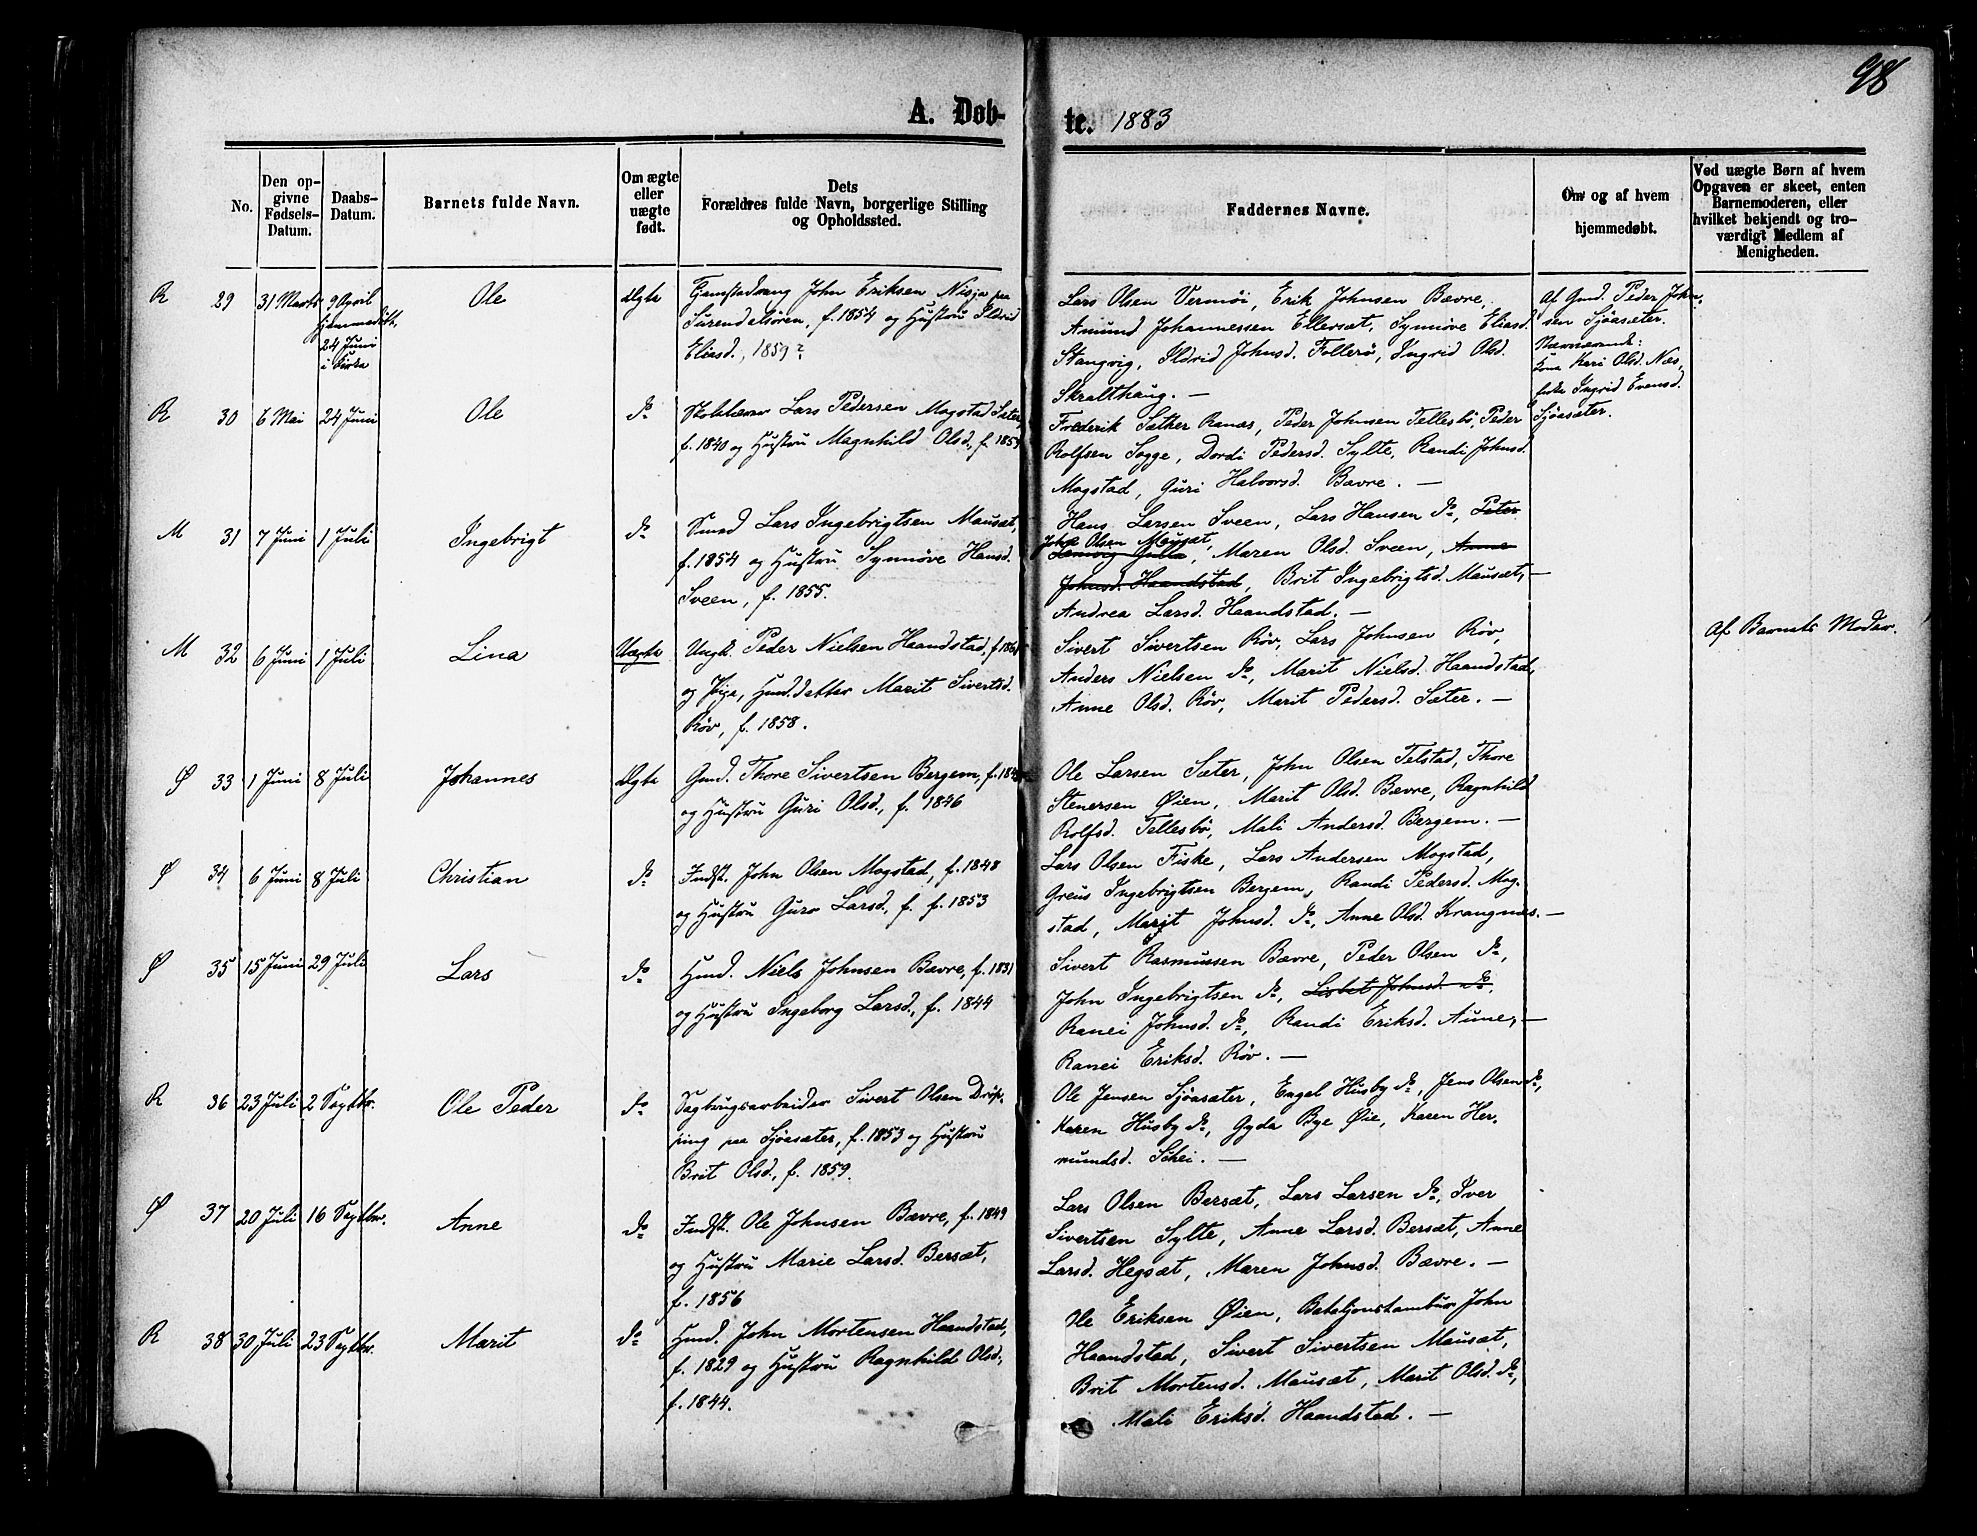 98
A. Døb-
te. 1883
No.
Den op-
givne
Fødsels-
Datum.
Daabs-
Datum.
Barnets fulde Navn.
Om ægte
eller
uægte
født.
Dets
Forældres fulde Navn, borgerlige Stilling
og Opholdssted.
Faddernes Navne.
Om og af hvem
hjemmedøbt.
Ved uægte Børn af hvem
Opgaven er skeet, enten
Barnemoderen, eller
hvilket bekjendt og tro-
værdigt Medlem af
Menigheden.
R 29 31 Marts 9 April
hjemmedøbt,
24 Juni
i Kirke
Ole
Ægte
John Eriksen Nisja paa
Surendalsøren, f. 1854 og Hustru Ildrid
Eliasd., 1859?
Lars Olsen Vermøi, Erik Johnsen Bævre,
Amund Johannessen Ellevsæt, Synnøve Eliasd.
Stangvig, Ildrid Johnsd. Follerø, Ingrid Olsd.
Skralthaug. —
Af Gmd. Peder John-
sen Sjøasæter.
Nærværende:
Kona Kari Olsd. Næs,
Ingrid Evensd.
Sjøasæter.
R 30 6 Mai 24 Juni Ole do
Lars Pedersen Mogstad Sæter,
f. 1840 og Hustru Magnhild Olsd., f. 1859
Frederik Sæther Ranæs, Peder Johnsen Tellesbø, Peder
Rolfsen Sogge, Dordi Pedersd. Sylte, Randi Johnsd.
Mogstad, Guri Halvorsd. Bævre. —
M 31 7 Juni 1 Juli Ingebrigt do
Smed Lars Ingebrigtsen Mausæt,
f. 1854 og Hustru Synnøve Hansd.
Sveen, f. 1855.
Hans Larsen Sveen, Lars Hansen do, Peter
John Olsen Mausæt,
Gulla, Maren Olsd. Sveen, Anne
Johnsd. Haandstad, Brit Ingebrigtsd. Mausæt, —
Andrea Larsd. Haandstad. —
M 32 6 Juni 1 Juli Lina Uægte
Ungk. Peder Nielsen Haandstad, f. 1861
og Pige, Gmd.datter Marit Sivertsd.
Røv, f. 1858.
Sivert Sivertsen Røv, Lars Johnsen Røv,
Anders Nielsen do, Marit Nielsd. Haandstad,
Anne Olsd. Røv, Marit Pedersd. Sæter. —
Af Barnets Moder.
Ø 33 1 Juni 8 Juli Johannes Ægte
Gmd. Thore Sivertsen Bergem,
og Hustru Guri Olsd., f. 1846
Ole Larsen Sæter, John Olsen Telstad, Thore
Stenersen Øien, Marit Olsd. Bævre, Ragnhild
Rolfsd. Tellesbø, Mali Andersd. Bergem. —
Ø 34 6 Juni 8 Juli Christian do
Indst. John Olsen Mogstad, f. 1848
og Hustru Guro Larsd., f. f. 1853
Lars Olsen Fiske, Lars Andersen Mogstad,
Greus Ingebrigtsen Bergem, Randi Pedersd. Mog-
stad, Marit Johnsd. do, Anne Olsd. Krangnæs. —
Ø 35 15 Juni 29 Juli Lars do
Gmd. Niels Johnsen Bævre, f. 1831
og Hustru Ingeborg Larsd., f. 1844
Sivert Rasmussen Bævre, Peder Olsen do,
John Ingebrigtsen do, Lisbet Johnsd. do,
Ranei Johnsd. do, Randi Eriksd. Aune, —
Ranei Eriksd. Røv. —
R 36 23 Juli 2 Septbr. Ole Peder do
Sagbrugsarbeider Sivert Olsen Drøp-
ping paa Sjøasæter, f. 1853 og Hustru
Brit Olsd., f. 1859.
Ole Jensen Sjøasæter, Engel Husby do, Jens Olsen do,
Karen Husby do, Gyda Bye Øie, Karen Her-
mundsd. Schei. —
Ø 37 20 Juli 16 Septbr. Anne do
Indst. Ole Johnsen Bævre, f. 1849
og Hustru Marie Larsd. Bersæt,
f. 1856
Lars Olsen Bersæt, Lars Larsen do, Iver
Sivertsen Sylte, Anne Larsd. Bersæt, Anne
Larsd. Hegsæt, Maren Johnsd. Bævre. —
R 38 30 Juli 23 Septbr. Marit do
Gmd. John Mortensen Haandstad,
f. 1829 og Hustru Ragnhild Olsd.,
f. 1844.
Ole Eriksen Øien, Bataljonstambur John
Haandstad, Sivert Sivertsen Mausæt,
Brit Mortensd. Mausæt, Marit Olsd. do,
Mali Eriksd. Haandstad. —